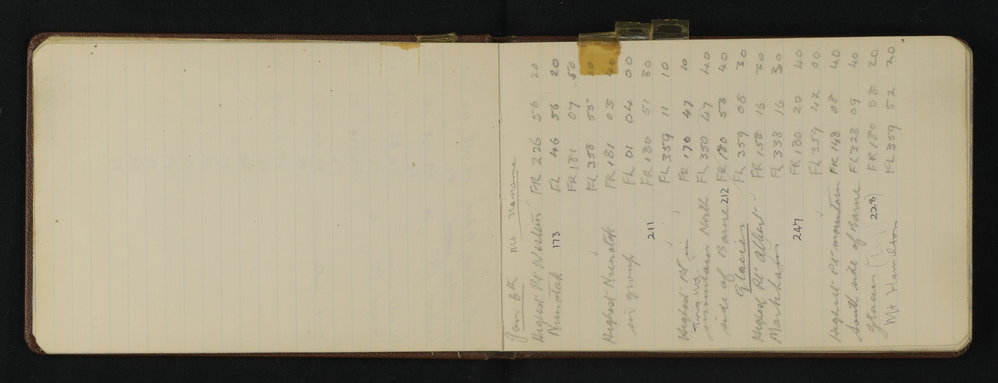 Jan 8th Mt Noname
Highest Pt Western FR 226 56 20
Nunatak 173 FL 46 56 20
FR 181 07 50
FL 358 55
Highest Nunatak FR 181 03
in group FL 01 04 00
211 FR 180 51 30
FL 359 11 10
Highest Pt in FR 170 47 10
mountain North FL 350 47 40
side of Barne 212 FR 180 53 40
Glacier FL 359 05 30
Highest Pt Albert FR 158 16 30
Markham FL 338 16 30
247 FR 180 20 40
FL 359 42 00
Highest Pt mountain FR 148 08 40
South side of Barne FL 328 09 40
glacier 228 FR 180 08 20
Mt Hamilton FL 359 52 20